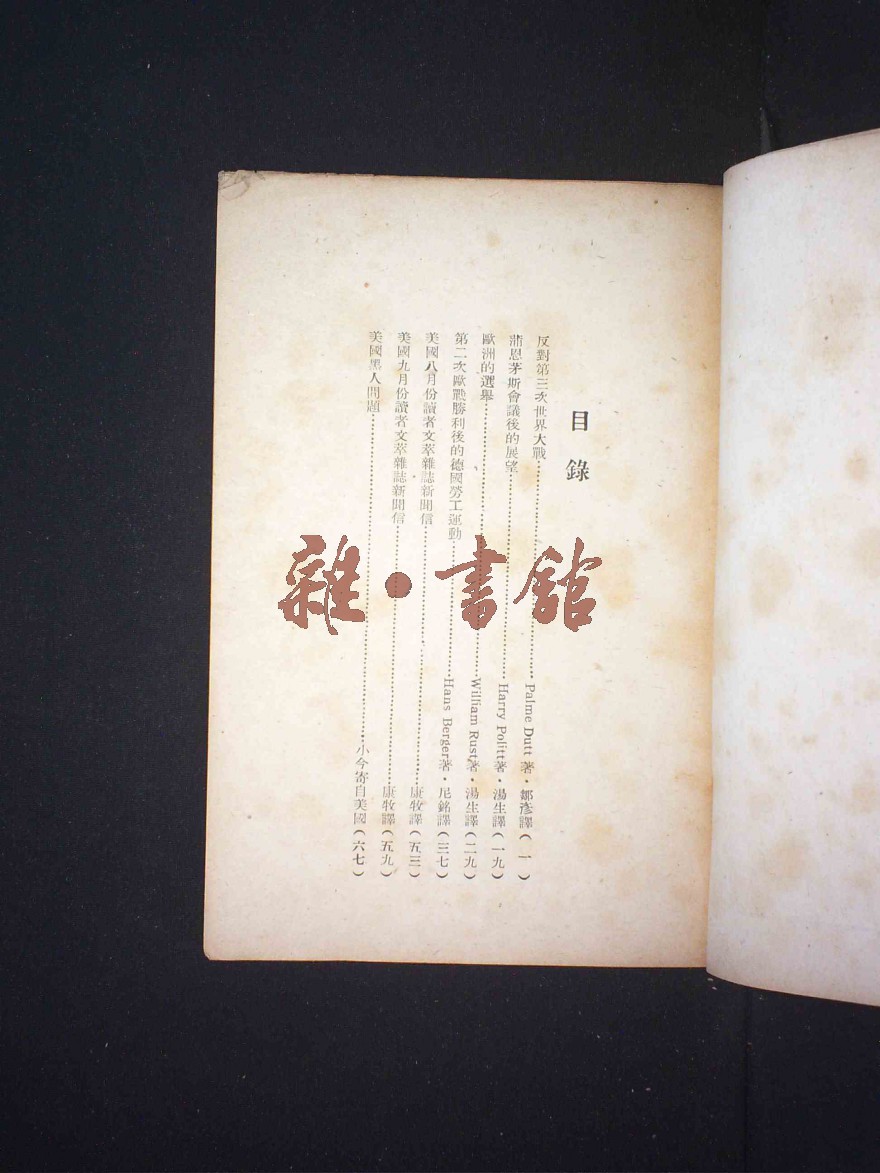 目錄
反對第三次世界大戰……Palme Dutt 著・鄒彥譯(一)
蒲恩茅斯會議後的展望……Harry Politt著・湯生譯(一九)
歐洲的選舉……William Rust著・湯生譯(二九)
第二次歐戰勝利後的德國勞工運動……Hans Berger著・尼銘譯(三七)
美國八月份讀者文萃雜誌新聞信……康牧譯(五三)
美國九月份讀者文萃雜誌新聞信……康牧譯(五九)
美國黑人問題……小今寄自美國(六七)
雜・書館